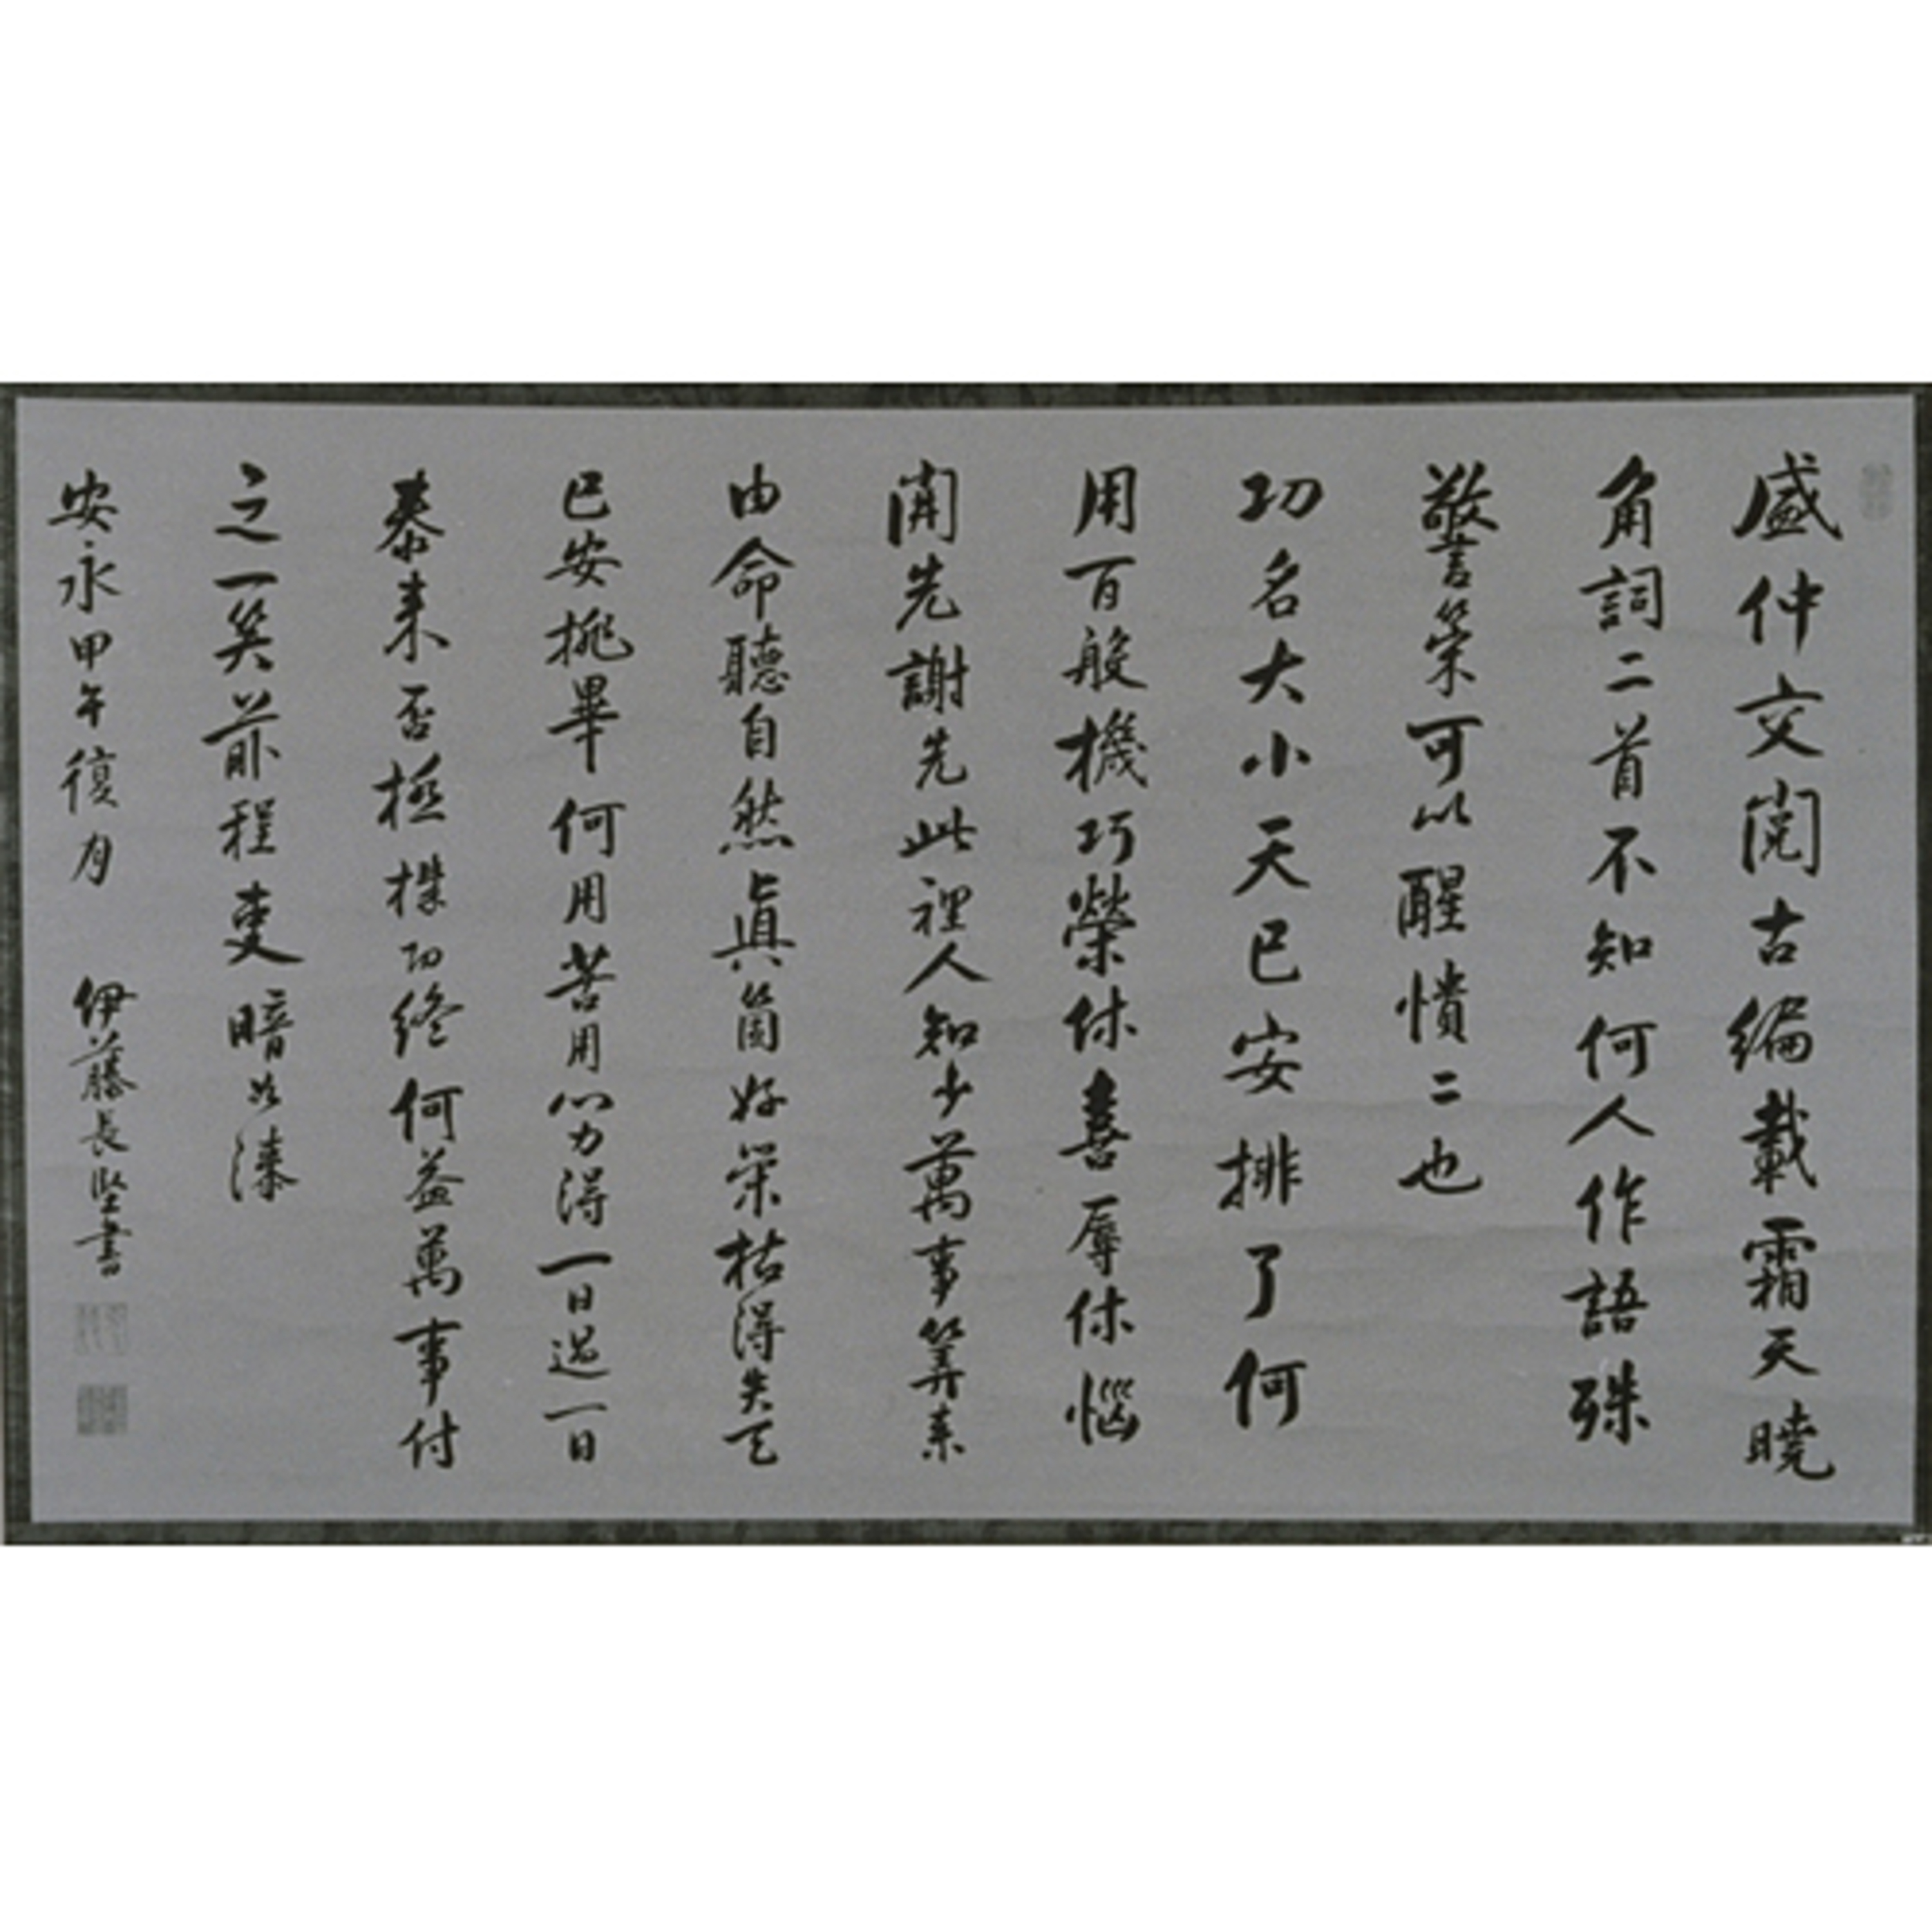 盛仲交閲古編載霜天曉
角詞二首不知何人作語殊
警策可以醒憒二也
功名大小天已安排了何
用百般機巧榮休喜辱休惱
開先謝先此裡人知少萬事算来
由命聽自然眞箇好榮枯得失天
已安排畢何用苦用心力得一日過一日
泰来否極機巧終何益萬事付
之一笑前程更暗如漆
安永甲午復月 伊藤長堅書